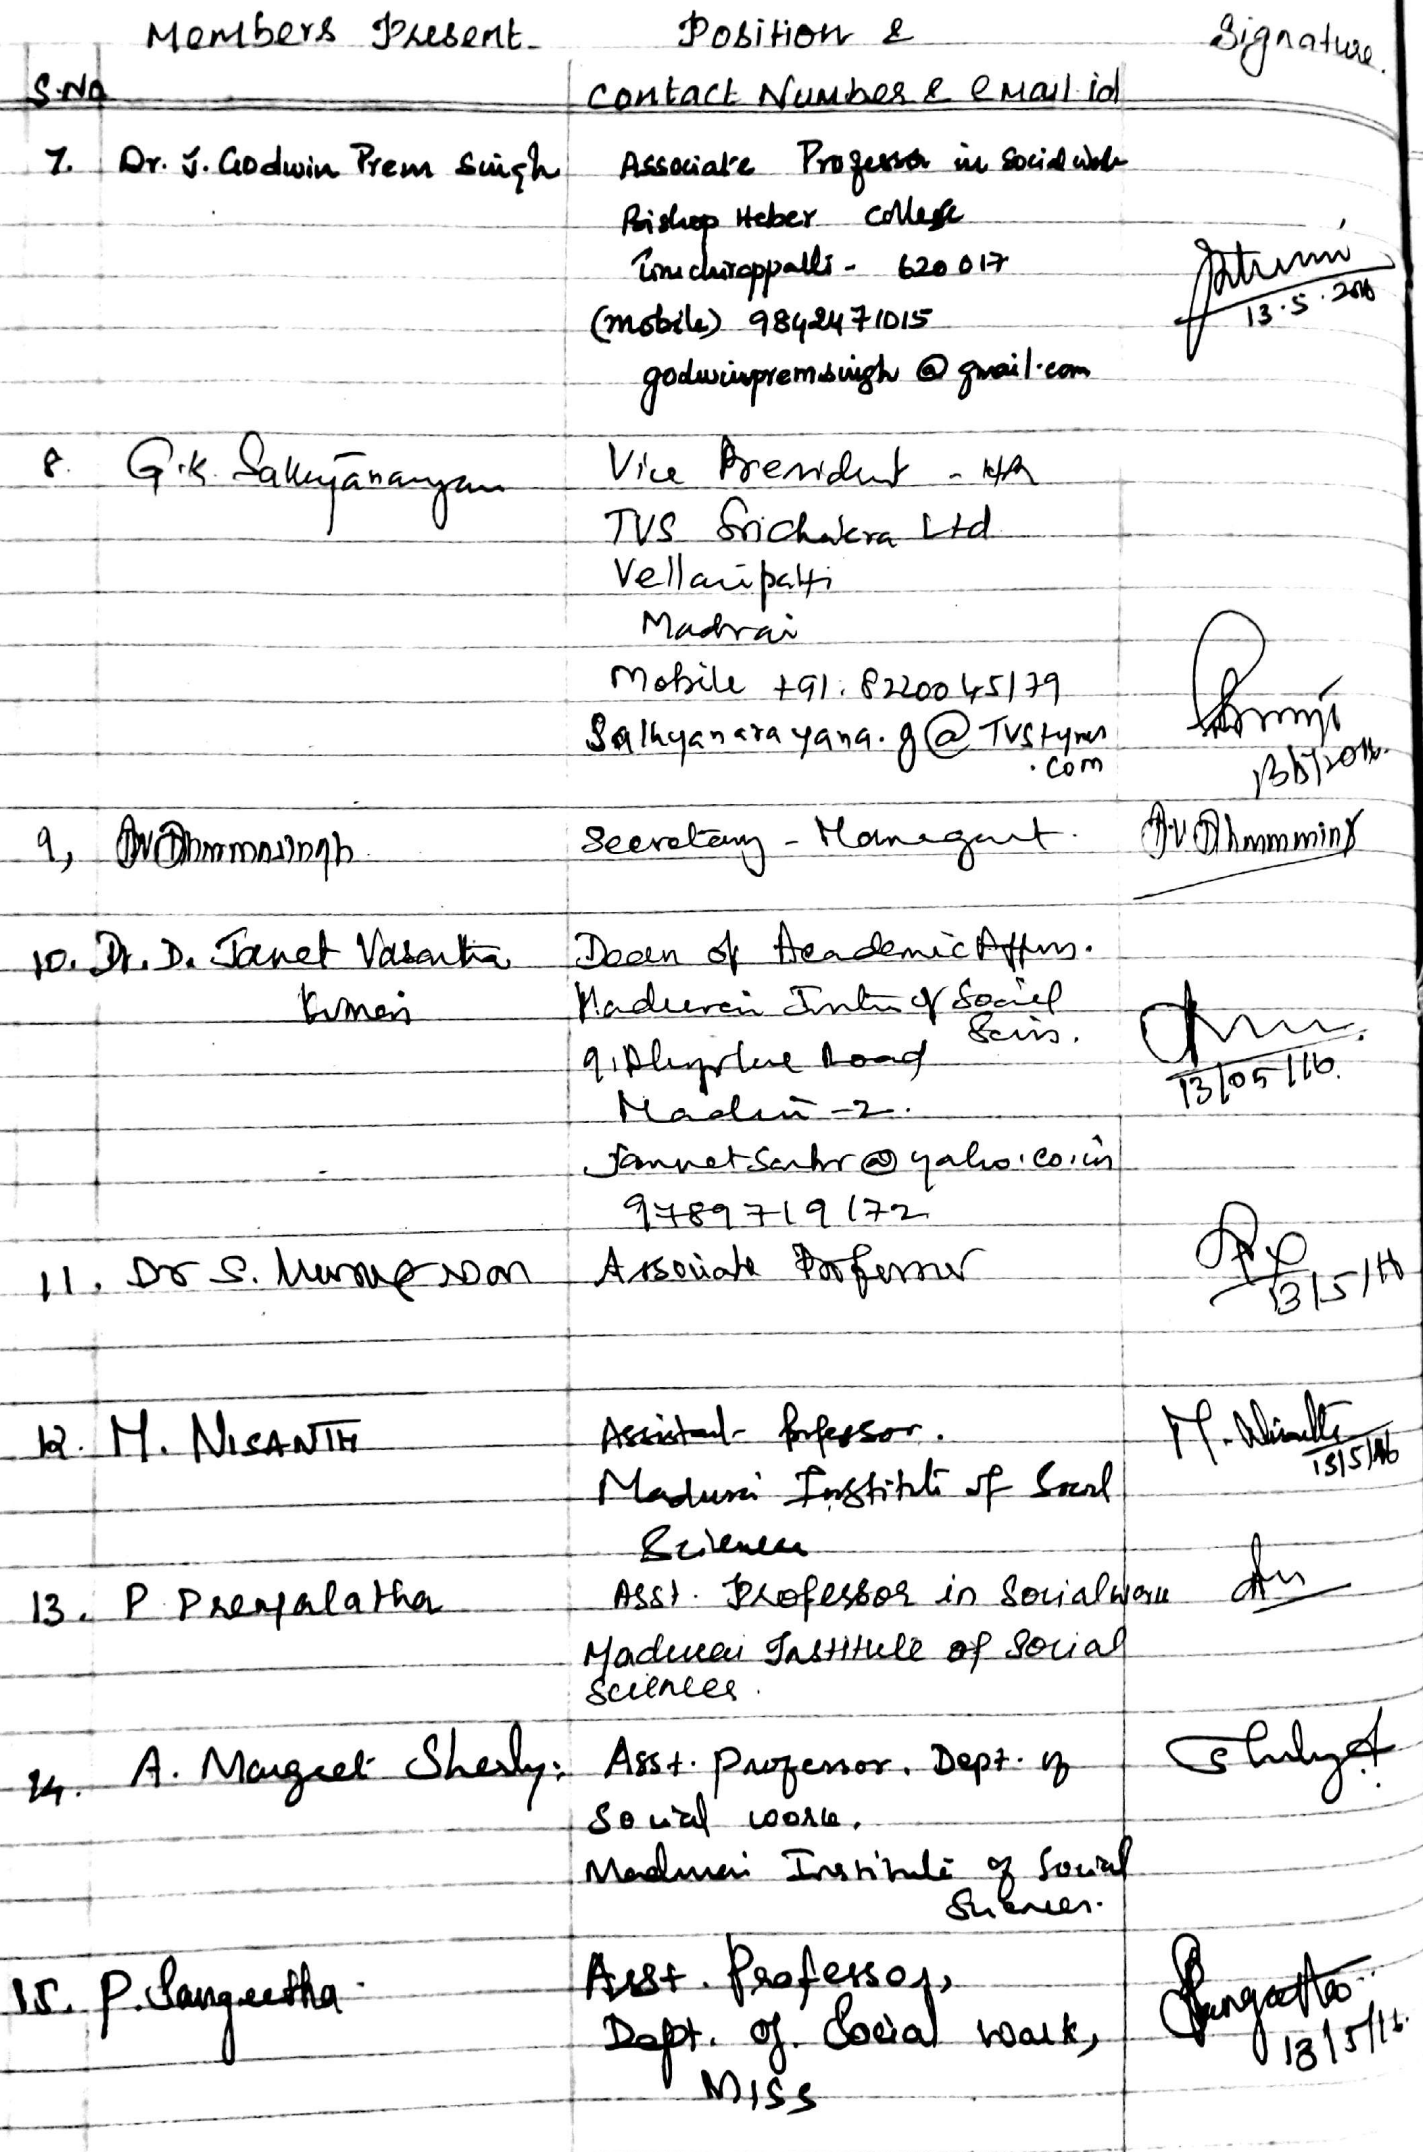 Members Present Position & Signature.
S.No Contact Number & email id
7. Dr. J. Godwin Prem Singh Associate Professor in Social Work
Bishop Heber College
Tiruchirappalli - 620 017
(mobile) 9842471015
13.5.2016
godwinpremsingh @ gmail.com
8. G.K. Sathyanarayan Vice President - HR
TVS Srichakra Ltd
Vellaripatti
Madurai
Mobile +91. 8220045179
Sathyanarayana.g@TVStyres
.com
13/5/2016.
9, Secretary - Managment.
10. Dr. D. Janet Vasantha Dean of Academic Affrs.
Kumari Madurai Instn of Social
Scins.
9, Road
13/05/16.
Madurai -2.
@yahoo.co.in
9789719172
11. Dr S. Murugesan Associate Professor
13/5/16
12. M. NISANTH Assistant Professor. M. Nisanth
13/5/16
Madurai Institute of Social
Sciences
13. P. Premalatha Asst. Professor in Social work
Madurai Institute of Social
Sciences.
14. A. Margret Sherly: Asst. Professor. Dept. of
Social work.
Madurai Institute of Social
Sciences.
15. P. Sangeetha. Asst. Professor, Sangeetha
Dept. of Social Work, 13/5/16.
MISS